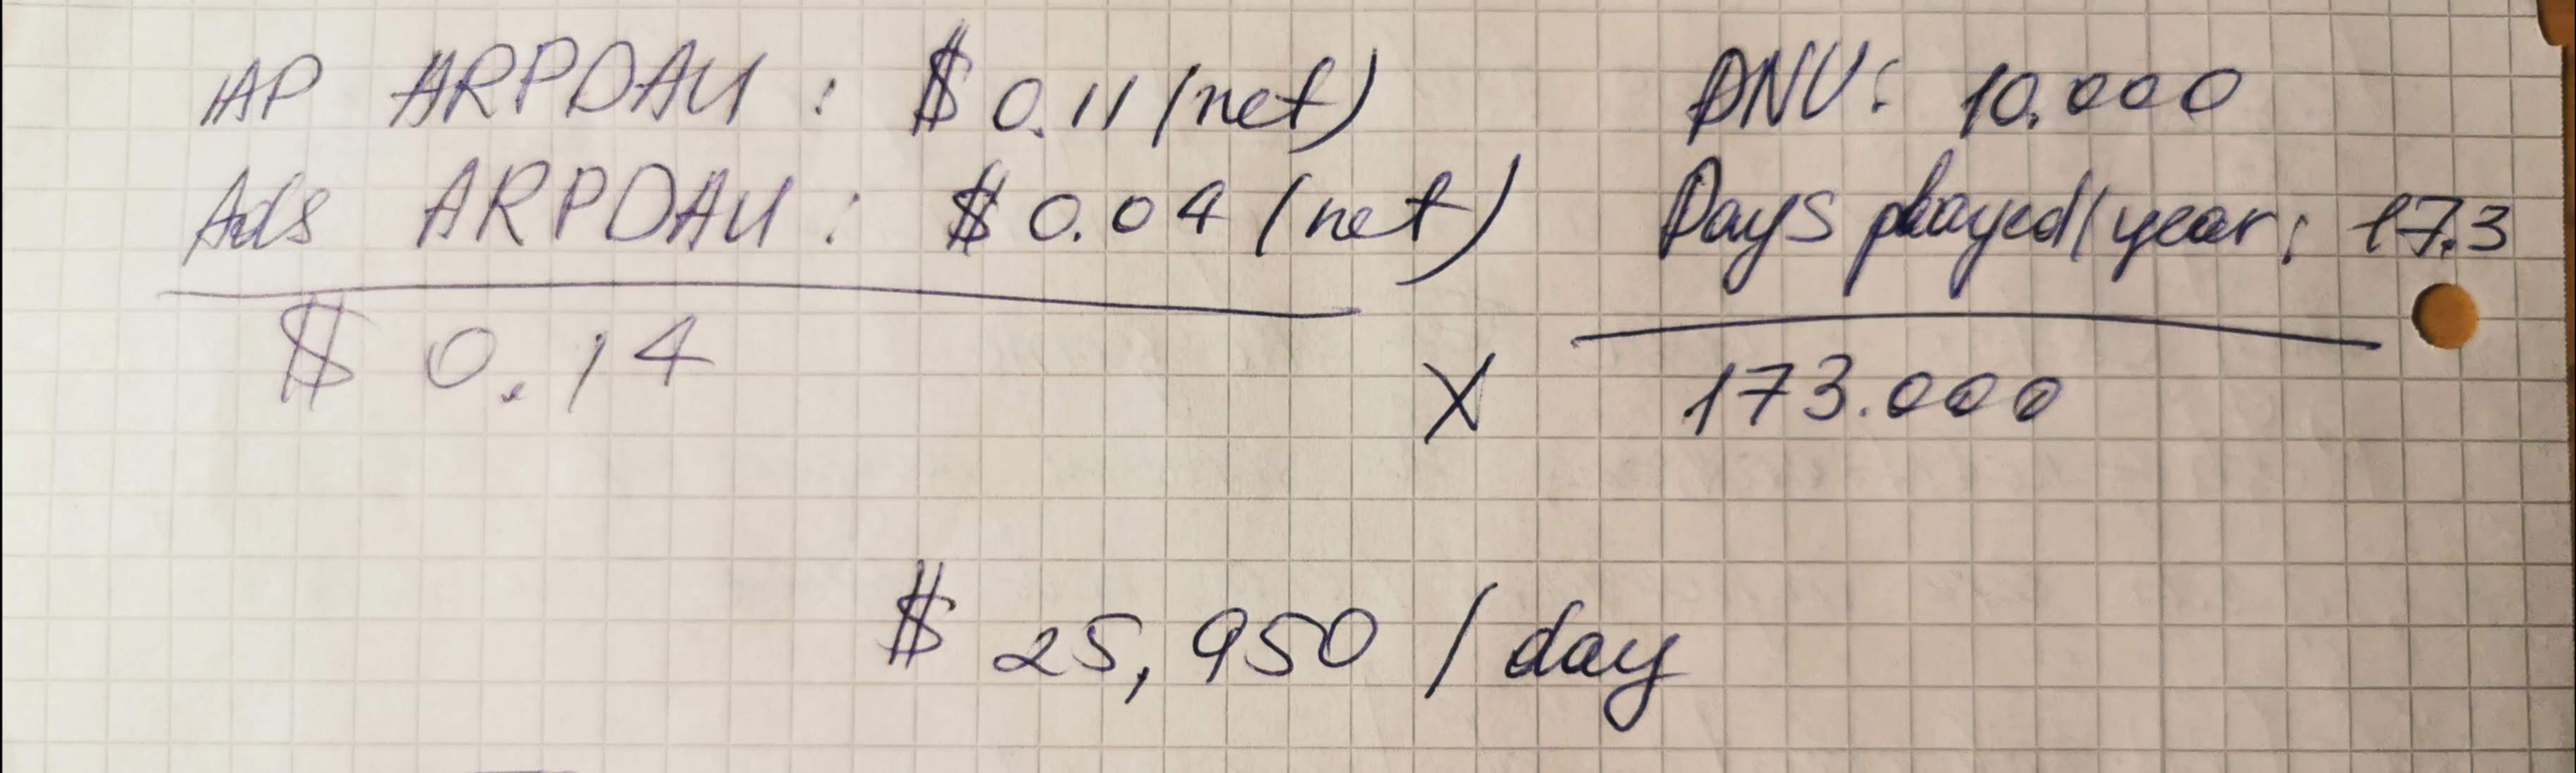 IAP ARPDAU: $0.11 (net)
Ads ARPDAU: $0.04 (net)
$0.14
DNU: 10.000
Days played/year: 17.3
X 173.000
$25,950 / day